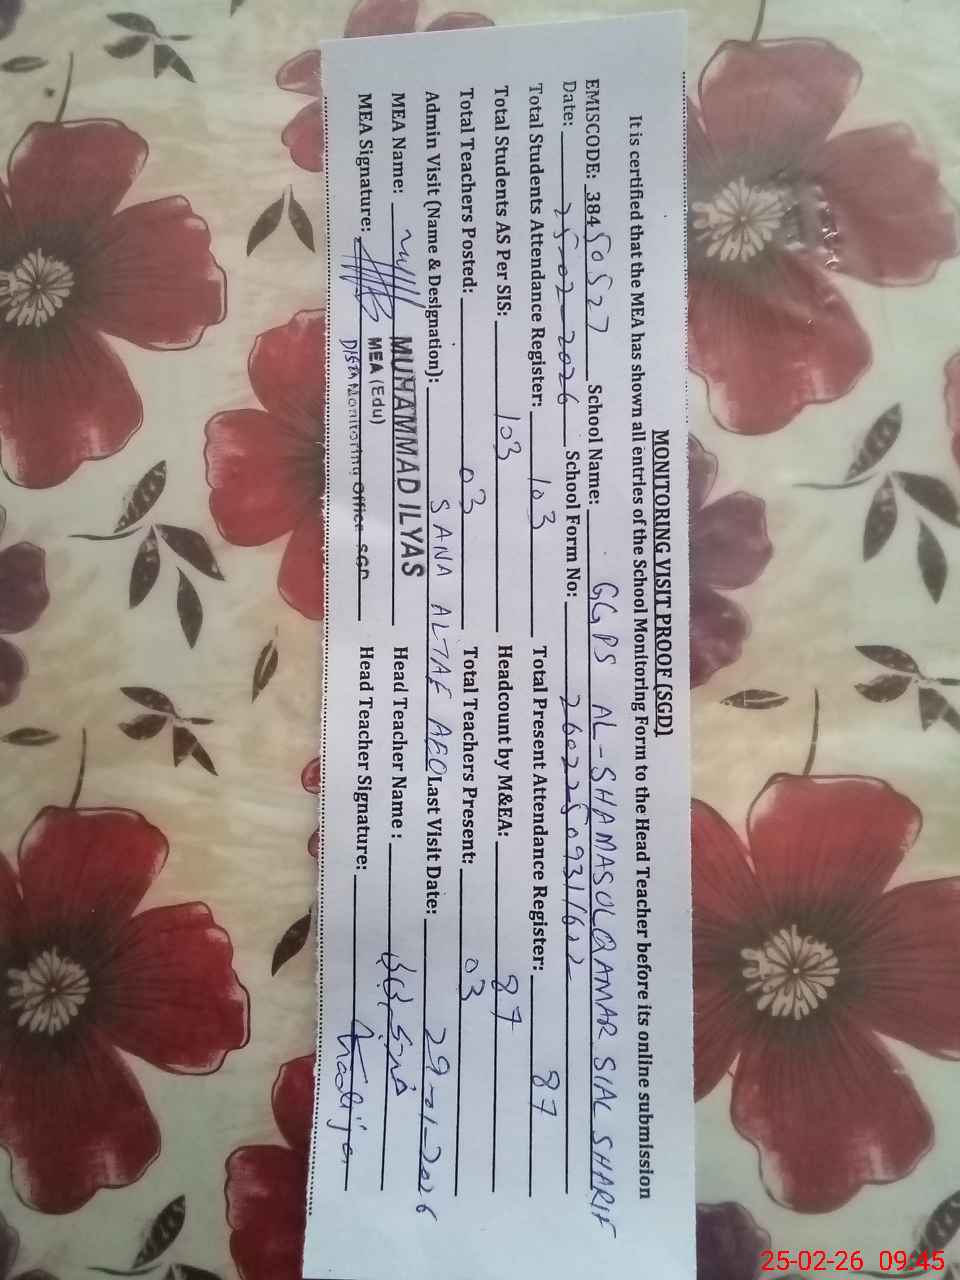 MONITORING VISIT PROOF (SGD)
It is certified that the MEA has shown all entries of the School Monitoring Form to the Head Teacher before its online submission
EMISCODE: 38450527 School Name: GGPS AL-SHAMASULQAMAR SIAL SHARIF
Date: 25-02-2026 School Form No: 260225093116
Total Students Attendance Register: 103 Total Present Attendance Register: 87
Total Students AS Per SIS: 103 Headcount by M&EA: 87
Total Teachers Posted: 03 Total Teachers Present: 03
Admin Visit (Name & Designation): SANA ALTAF AEO Last Visit Date: 29-01-2026
MEA Name: MUHAMMAD ILYAS Head Teacher Name :
MEA (Edu)
MEA Signature: Head Teacher Signature: Khadija
Distt: Monitoring Office SGD
25-02-26 09:45